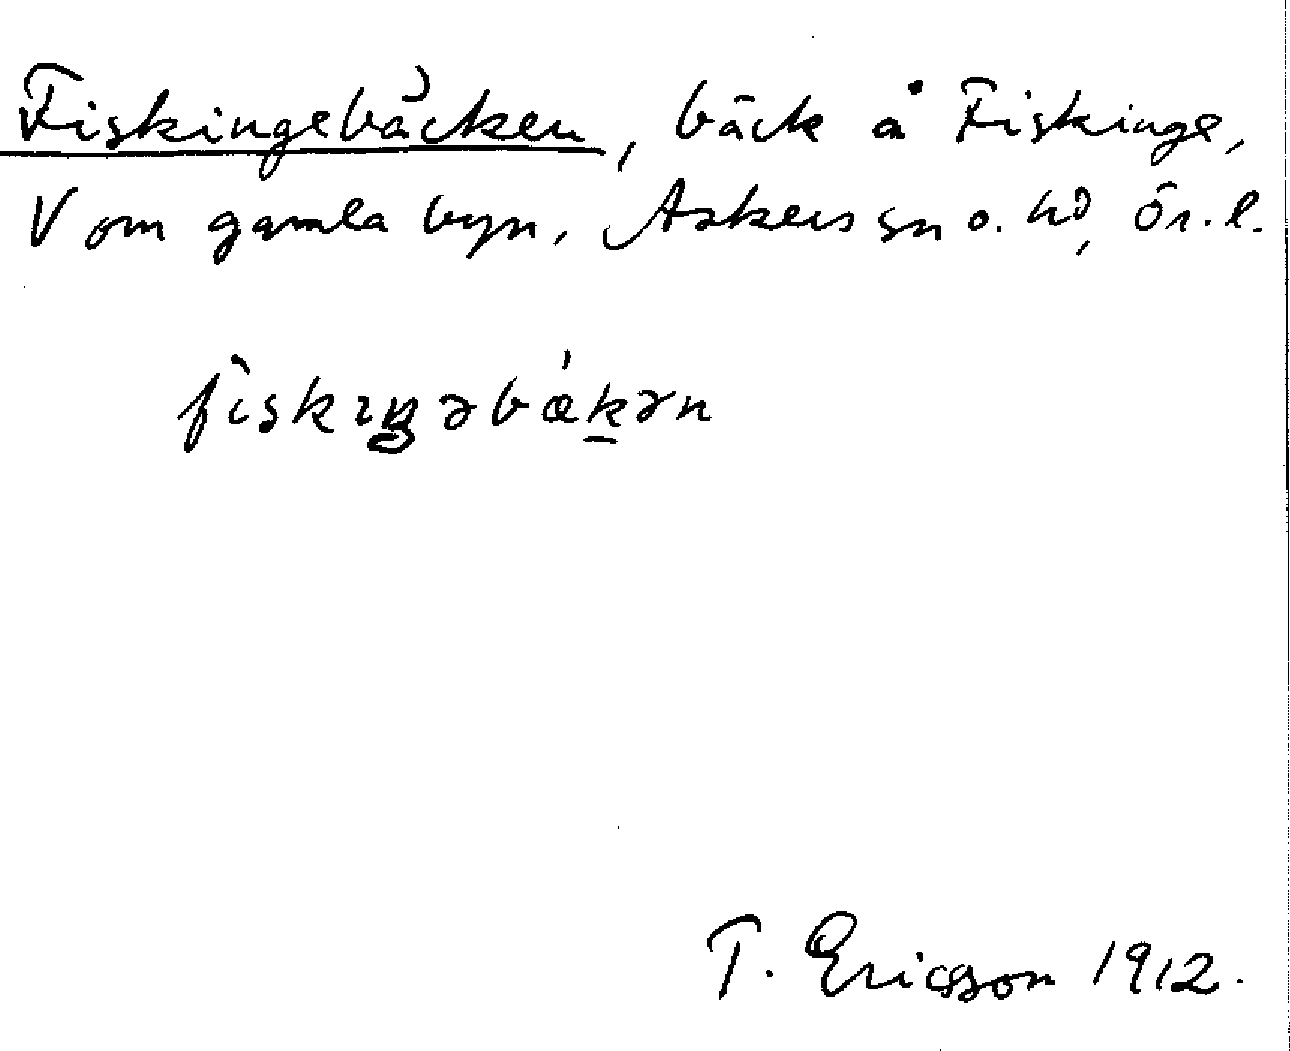 Fiskingebäcken, bäck å Fiskinge,
V om gamla byn, Askers sn o. hd, Ör. l.
fìskɪŋəbǽk̲ən
T. Ericsson 1912.